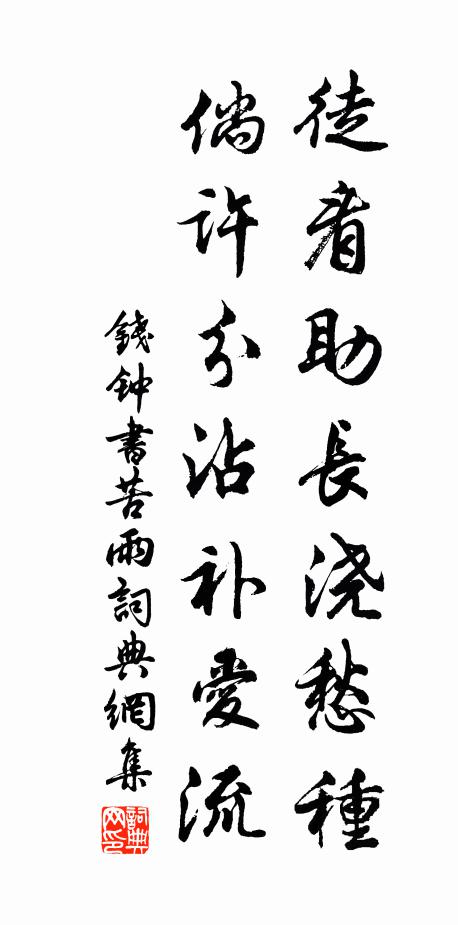 徒看助長浇愁種
倘許分沾补愛流
錢钟書苦雨詞典網集
詞典网印